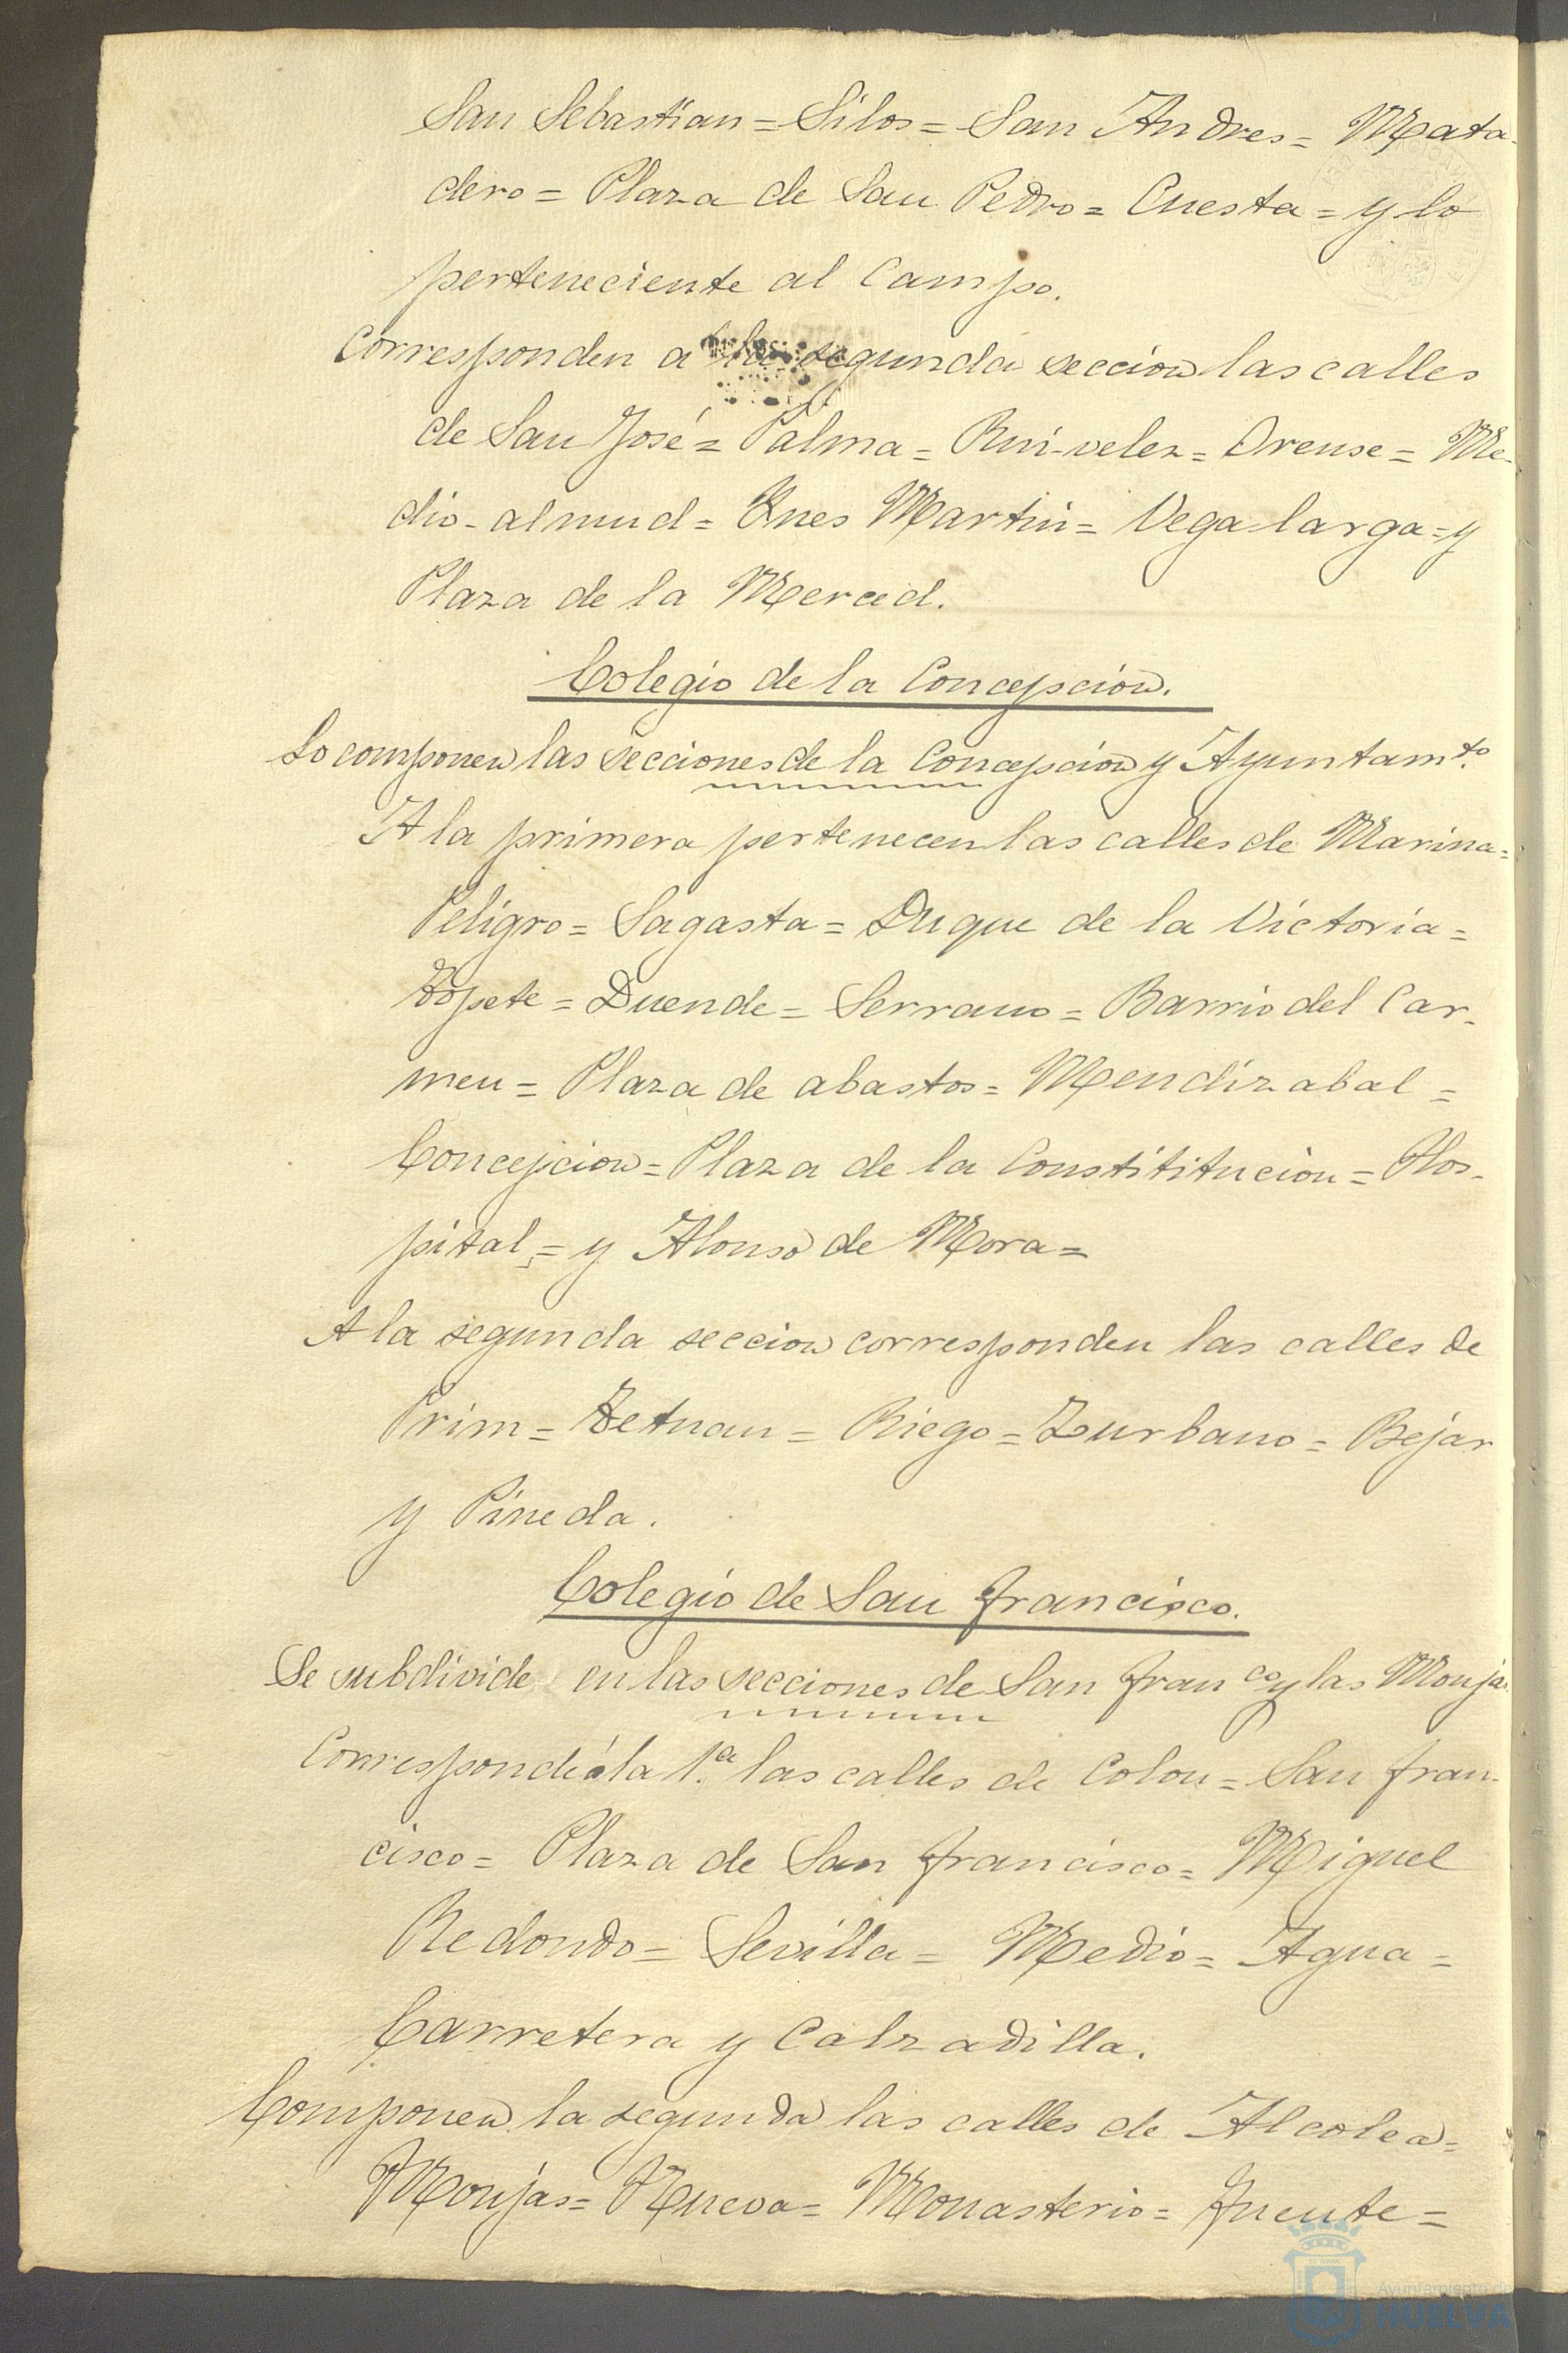 San Sebastian = Silos = San Andres = Mata-
dero = Plaza de San Pedro = Cuesta = y lo
perteneciente al Campo.
Corresponden a la segunda seccion las calles
de San José = Palma = Rui-velez = Orense = Me-
dio-almud = Ynes Martin = Vega larga = y
Plaza de la Merced.
Colegio de la Concepcion.
Lo componen las secciones de la Concepcion y Ayuntamto.
A la primera pertenecen las calles de Marina =
Peligro = Sagasta = Duque de la Victoria =
Topete = Duende = Serrano = Barrio del Car-
men = Plaza de abastos = Mendizabal =
Concepcion = Plaza de la Constititucion = Hos-
pital = y Alonso de Mora =
A la segunda seccion corresponden las calles de
Prim = Tetuan = Riego = Zurbano = Bejar
y Pineda.
Colegio de San Francisco.
Se subdivide en las secciones de San Franco y las Monjas
Corresponde á la 1.a las calles de Colon = San Fran-
cisco = Plaza de San Francisco = Miguel
Redondo = Sevilla = Medio = Agua =
Carretera y Calzadilla.
Componen la segunda las calles de Alcolea =
Monjas = Nueva = Monasterio = Fuente =
Ayuntamiento de
HUELVA